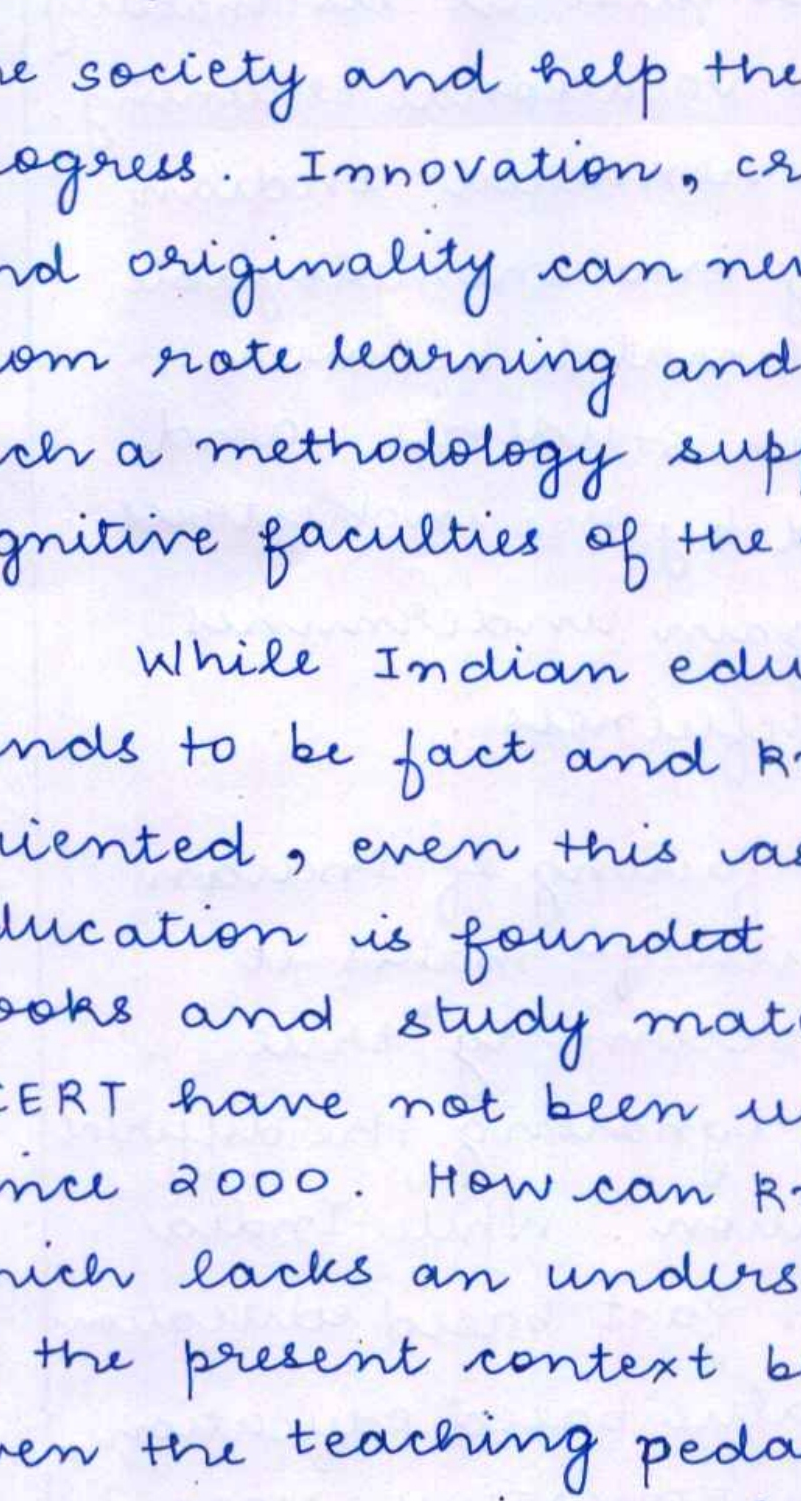 he society and help the
ogress. Innovation, cr
nd originality can nev
om rote learning and
ch a methodology supp
gnitive faculties of the
While Indian edu
nds to be fact and R
riented, even this as
ducation is founded
ooks and study mate
CERT have not been u
nce 2000. How can R
hich lacks an unders
the present context b
en the teaching peda